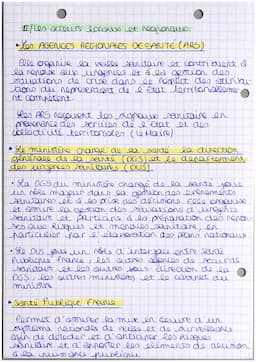 II/ Les acteurs locaux et régionaux.
• Les AGENCES REGIONALES DE SANTE (ARS)
Elle organise la veille sanitaire et contribuent à
la réponse aux urgences et à la gestion des
situations de crise dans le respect des attribu-
tions du représentant de l'Etat territorialement
compétent.
Les ARS reçoivent les signaux sanitaire en
provenance des services de l'Etat et des
collectivité territoriales (le Maire)
• Le ministère chargé de la santé : la direction
générale de la santé (DGS) et le département
des urgences sanitaires (DUS).
• La DGS du ministère chargé de la santé joue
un rôle majeur dans la gestion des évènements
sanitaires et à la prise des décisions. Elle organise
et assure la gestion des situations d'urgence
sanitaire et participe à la préparation des répon-
ses aux risques et menaces sanitaire, en
particulier par l'élaboration des plans nationaux
• Le DUS joue un rôle d'interface entre Santé
Publique France, les autres agences de sécurité
sanitaire et les autres sous-direction de la
DGS, les autres ministères et le cabinet du
ministre
• Santé Publique France
Permet d'assurer la mise en oeuvre d'un
système nationale de veille et de surveillance
afin de détecter et d'anticiper les risques
sanitaire et d'apporter les éléments de décision
à la puissance publique